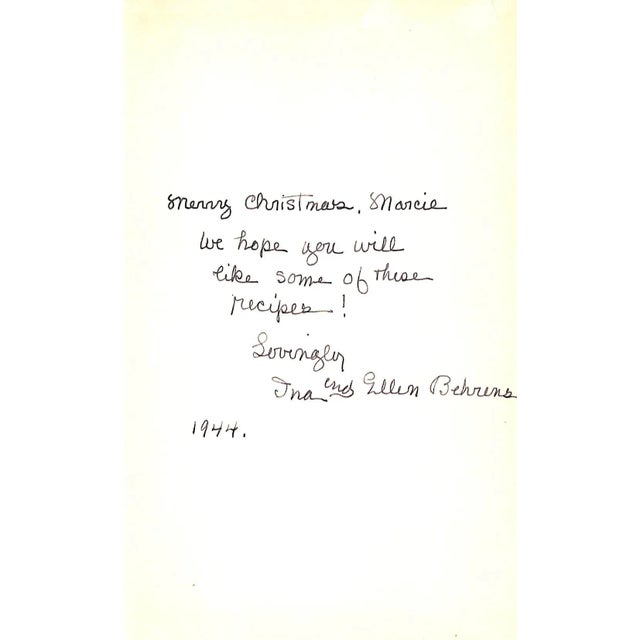 Merry Christmas, Marcie
We hope you will
like some of these
recipes!
Lovingly
Ina and Ellen Behrens
1944.